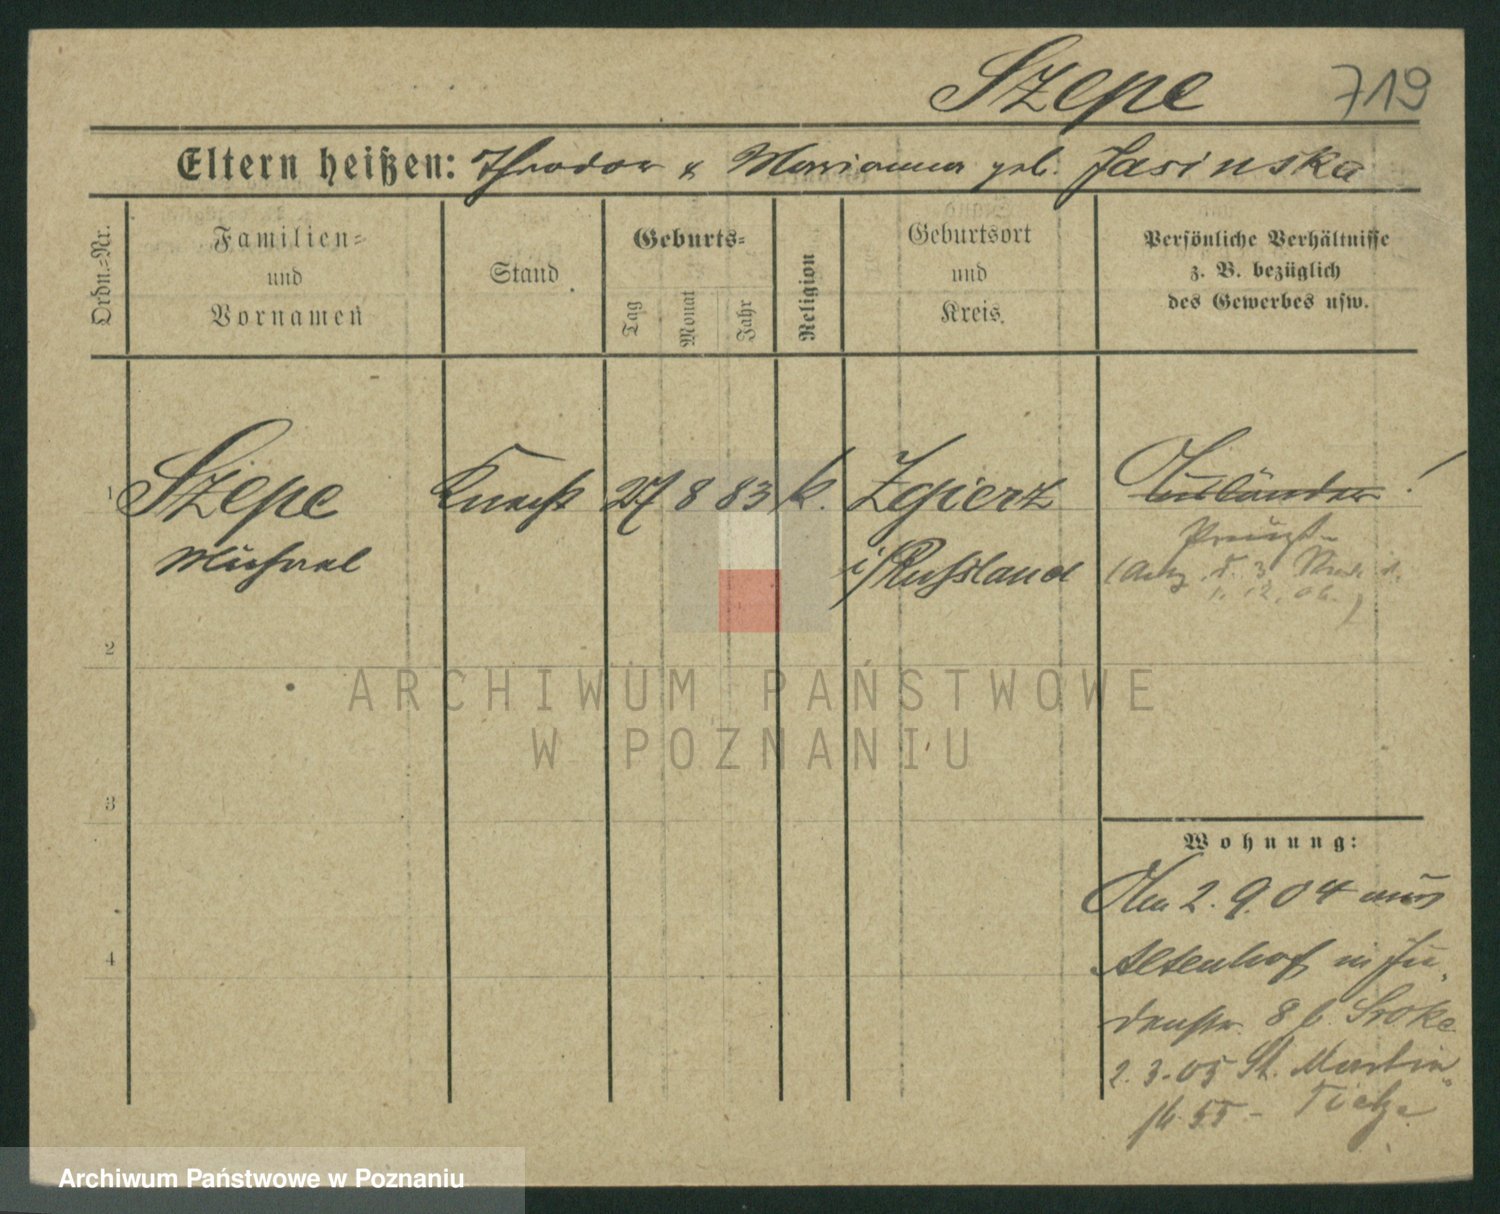 Szepe 719
Eltern heißen: Theodor & Marianna geb. Jasinska
Ordn.-Nr.
Familien-
und
Vornamen
Stand
Geburts-
Tag
Monat
Jahr
Religion
Geburtsort
und
Kreis.
Persönliche Verhältnisse
z. B. bezüglich
des Gewerbes usw.
1 Szepe Knecht 27 8 83 k. Zgierz Ausländer!
Michael i/Russland
Preuße
1.12.06.)
2
ARCHIWUM PAŃSTWOWE
W POZNANIU
3
Wohnung:
Am 2.9.04 aus
4 Altenhof in Ju-
denstr. 8 b. Sroke
2.3.05 St. Martin
55 - Tietze
Archiwum Państwowe w Poznaniu